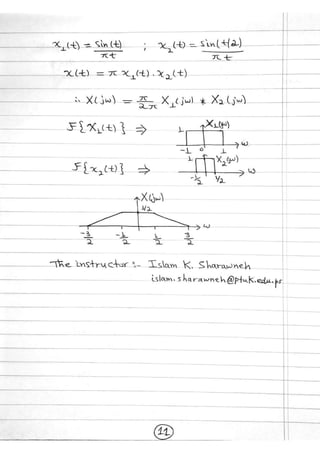 x₁(t) = sin(t)/πt ; x₂(t) = sin(t/2)/πt
x(t) = π x₁(t) . x₂(t)
∴ X(jω) = π/2π X₁(jω) * X₂(jω)
F{x₁(t)} ⇒
X₁(jω)
1
-1 0 1 ω
F{x₂(t)} ⇒
X₂(jω)
1
-1/2 1/2 ω
X(jω)
1/2
-3/2 -1/2 1/2 3/2 ω
The instructor :- Islam K. Sharawneh
islam.sharawneh@ptuk.edu.ps
11